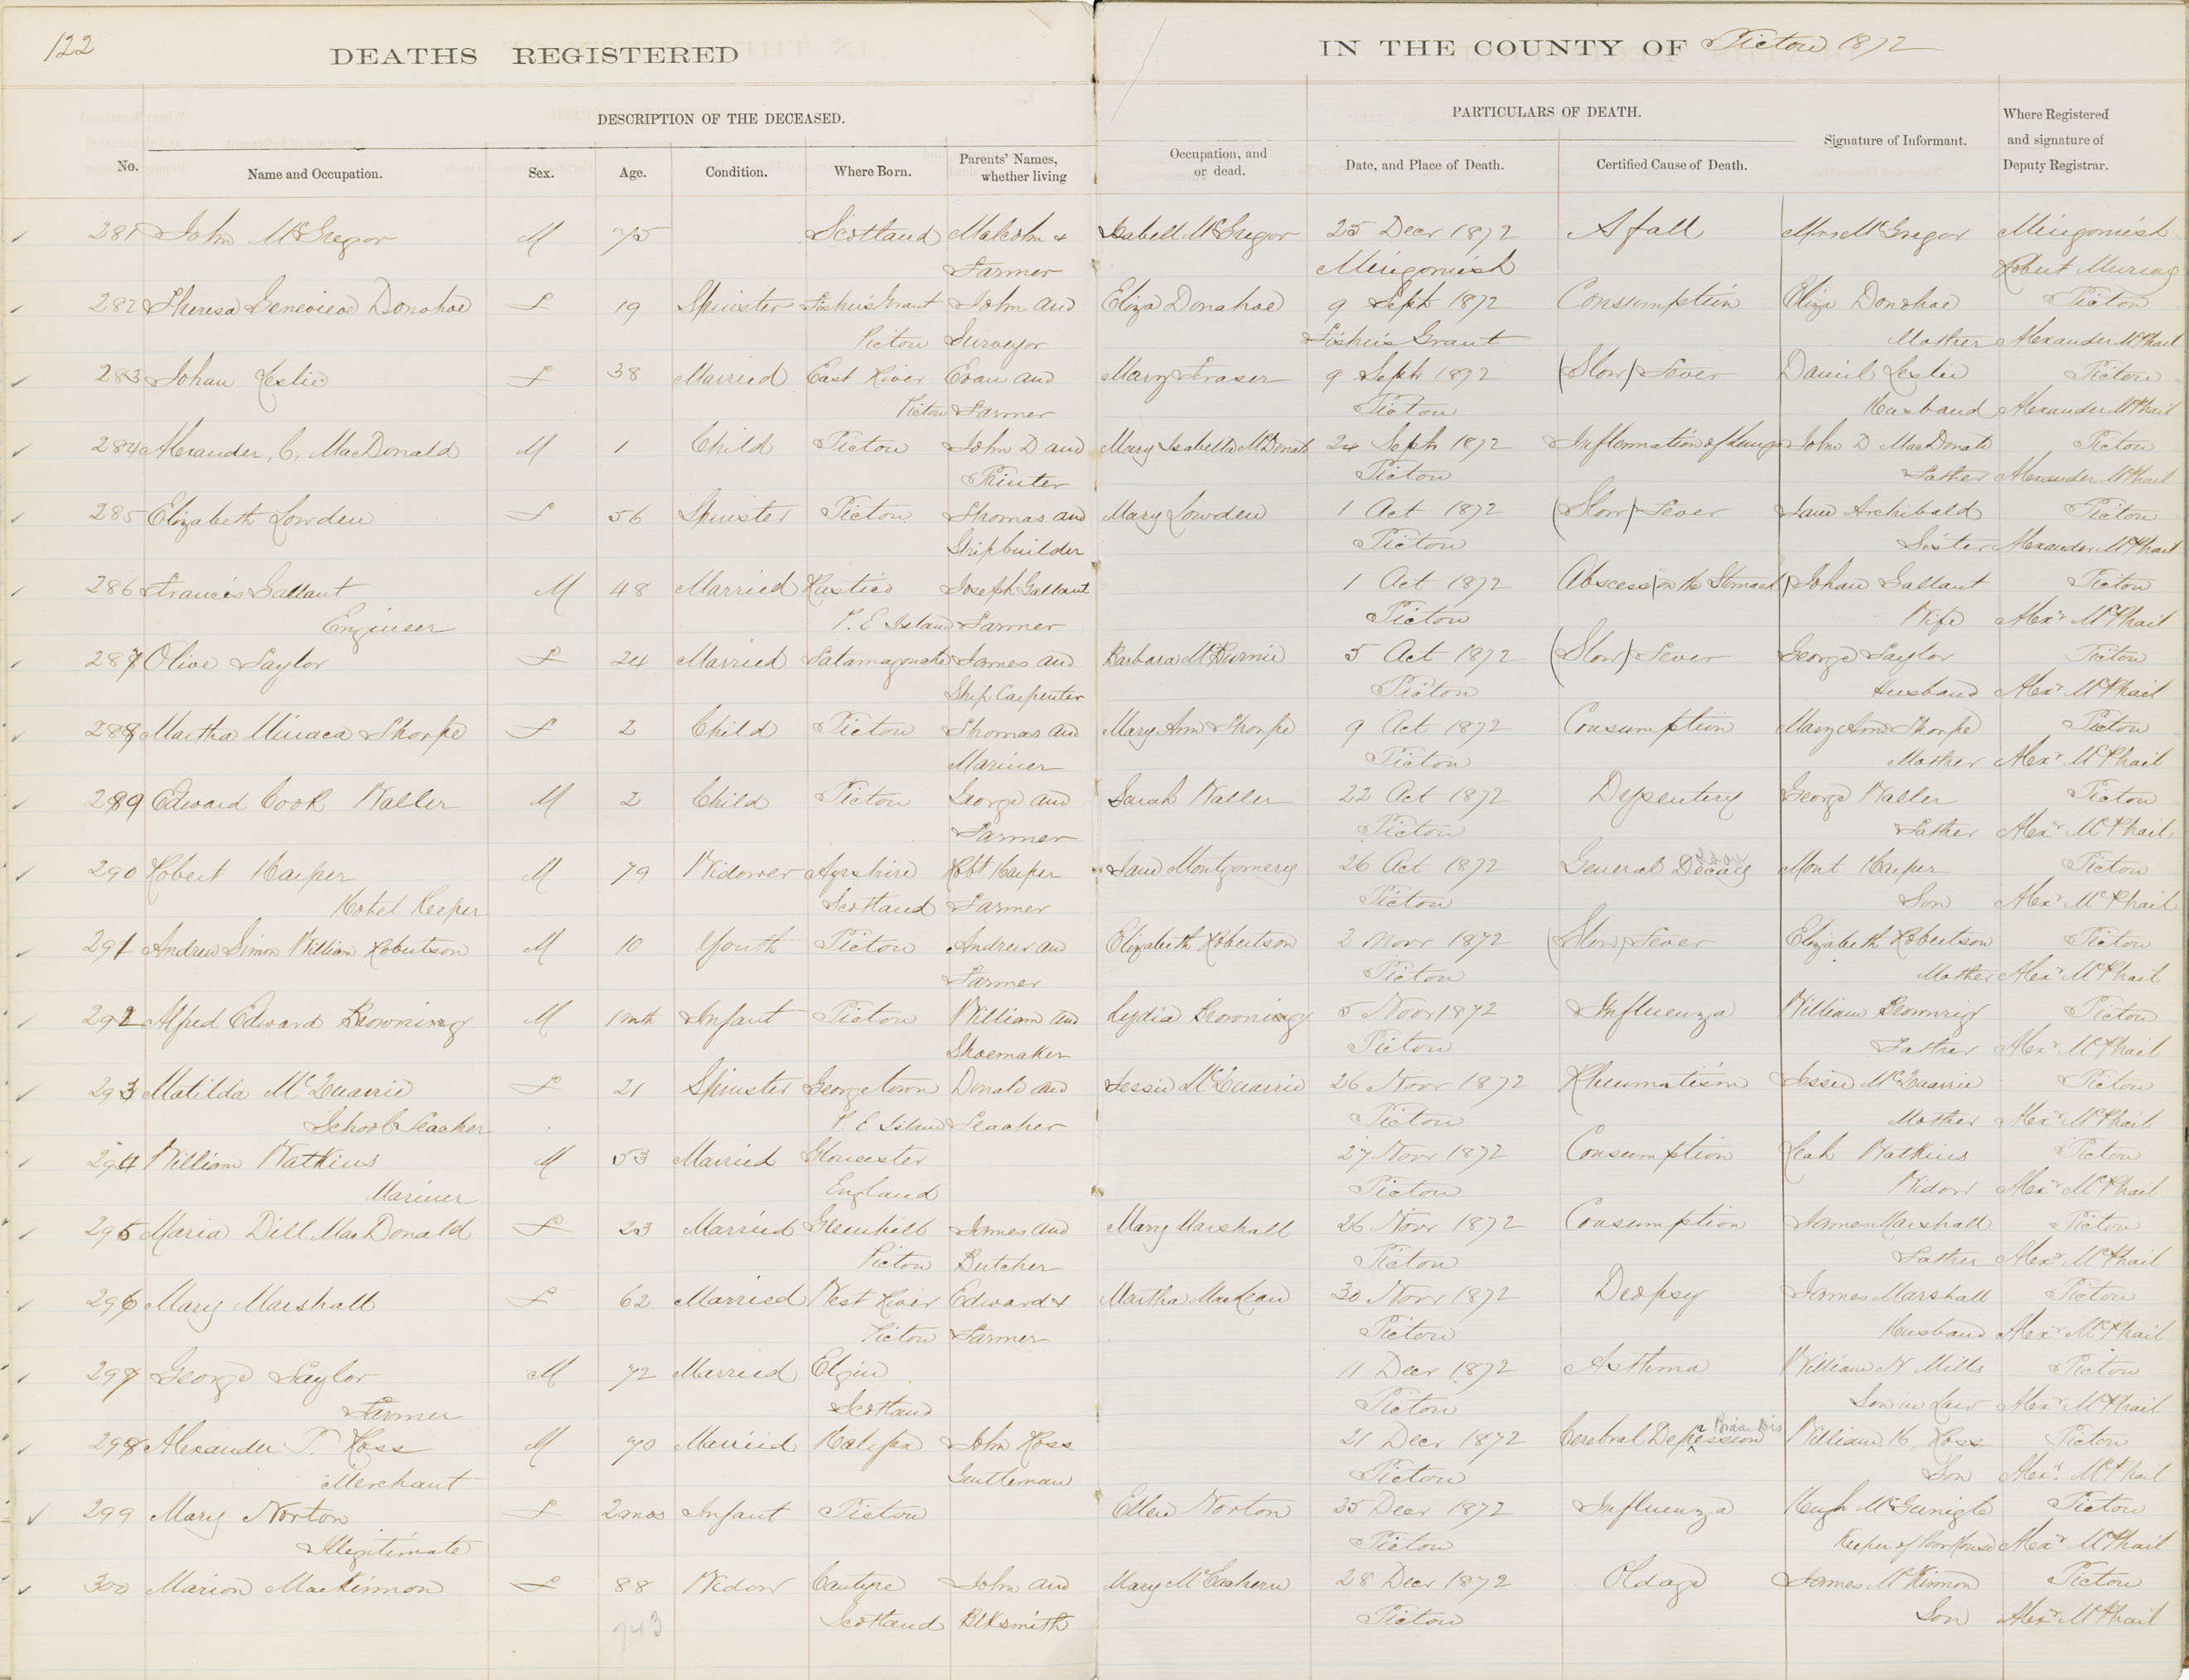 122
DEATHS REGISTERED IN THE COUNTY OF Pictou 1872
DESCRIPTION OF THE DECEASED. PARTICULARS OF DEATH.
No. Name and Occupation. Sex. Age. Condition. Where Born. Parents' Names, whether living Occupation, and or dead. Date, and Place of Death. Certified Cause of Death. Signature of Informant. Where Registered and signature of Deputy Registrar.
281 John McGregor M 75 Scotland Malcolm & Isabell McGregor 25 Decr 1872 A fall Mrs McGregor Merigomish
Farmer Merigomish Robert Murray
282 Theresa Genevieve Donohoe F 19 Spinster Fishers Grant John and Eliza Donahoe 9 Sept 1872 Consumption Eliza Donohoe Pictou
Pictou Surveyor Fishers Grant Mother Alexander McPhail
283 Johan Leslie F 38 Married East River Evan and Mary Fraser 9 Sept 1872 (Slow) Fever Daniel Leslie Pictou
Pictou Farmer Pictou Husband Alexander McPhail
284 Alexander, C, MacDonald M 1 Child Pictou John D and Mary Isabella McDonald 24 Sept 1872 Inflammation of Lungs John D MacDonald Pictou
Printer Pictou Father Alexander McPhail
285 Elizabeth Lowden F 56 Spinster Pictou Thomas and Mary Lowden 1 Oct 1872 (Slow) Fever Jane Archibald Pictou
Shipbuilder Pictou Sister Alexander McPhail
286 Francis Gallant M 48 Married Rustico Joseph Gallant 1 Oct 1872 Abscess (on the Stomach) Johan Gallant Pictou
Engineer P. E Island Farmer Pictou Wife Alexr McPhail
287 Olive Taylor F 24 Married Tatamagouche James and Barbara McBurnie 5 Oct 1872 (Slow) Fever George Taylor Pictou
Ship Carpenter Pictou Husband Alexr McPhail
288 Martha Thorpe F 2 Child Pictou Thomas and Mary Ann Thorpe 9 Oct 1872 Consumption Mary Ann Thorpe Pictou
Mariner Pictou Mother Alexr McPhail
289 Edward Cook Waller M 2 Child Pictou George and Sarah Waller 22 Oct 1872 Dysentery George Waller Pictou
Farmer Pictou Father Alexr McPhail
290 Robert Harper M 79 Widower Ayrshire Robt Harper Jane Montgomery 26 Oct 1872 General Decay Mont Harper Pictou
Hotel Keeper Scotland Farmer Pictou Son Alexr McPhail
291 Andrew Simon William Robertson M 10 Youth Pictou Andrew an Elizabeth Robertson 2 Novr 1872 (Slow) Fever Elizabeth Robertson Pictou
Farmer Pictou Mother Alexr McPhail
292 Alfred Edward Browning M 1 mth Infant Pictou William and Lydia Browning 5 Novr 1872 Influenza William Brownrig Pictou
Shoemaker Pictou Father Alexr McPhail
293 Matilda McQuarrie F 21 Spinster Georgetown Donald and Jessie McQuarrie 26 Novr 1872 Rheumatism Jessie McQuarrie Pictou
School Teacher P. E Island Teacher Pictou Mother Alexr McPhail
294 William Watkins M 53 Married Gloucester 27 Novr 1872 Consumption Leah Watkins Pictou
Mariner England Pictou Widow Alexr McPhail
295 Maria Dill MacDonald F 23 Married Greenhill James and Mary Marshall 26 Novr 1872 Consumption James Marshall Pictou
Pictou Butcher Pictou Father Alexr McPhail
296 Mary Marshall F 62 Married West River Edward & Martha MacLean 30 Novr 1872 Dropsy James Marshall Pictou
Pictou Farmer Pictou Husband Alexr McPhail
297 George Taylor M 72 Married Elgin 11 Decr 1872 Asthma William N Mills Pictou
Farmer Scotland Pictou Son in Law Alexr McPhail
298 Alexander P. Ross M 70 Married Halifax John Ross 21 Decr 1872 Cerebral Depression Brain Dis William H, Ross Pictou
Merchant Gentleman Pictou Son Alexr McPhail
299 Mary Norton F 2 mos Infant Pictou Ellen Norton 25 Decr 1872 Influenza Hugh McGunigle Pictou
Illegitimate Pictou Keeper of Poor House Alexr McPhail
300 Marion MacKinnon F 88 Widow Cantyre John and Mary McEachern 28 Decr 1872 Old age James McKinnon Pictou
943 Scotland Blksmith Pictou Son Alexr McPhail